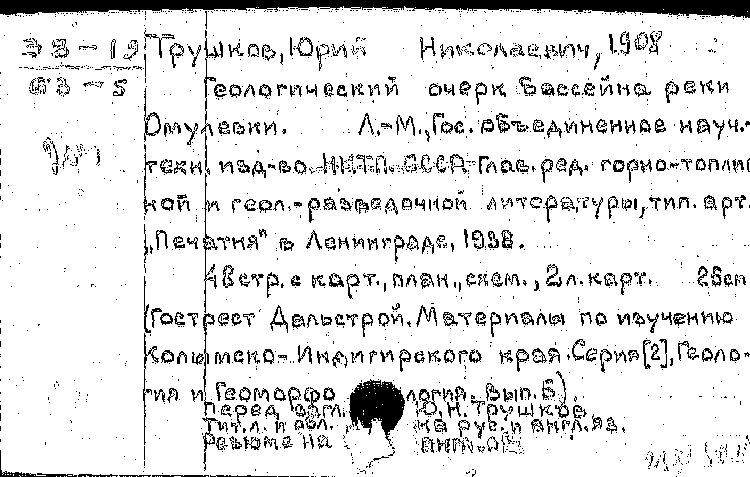 33-19 Трушков, Юрий Николаевич, 1908
63-5 Геологический очерк бассейна реки
Омулевки. Л.-М., Гос. объединенное науч.-
техн. изд-во. НКТП. СССР Глав. ред. горно-топлив
ной и геол.-разведочной литературы, тип. арт.
„Печатня" в Ленинграде, 1938.
48 стр. с карт., план., схем., 2 л. карт. 25см
(Гострест Дальстрой. Материалы по изучению
Колымско-Индигирского края. Серия [2], Геоло-
гия и Геоморфо логия, вып. 5).
Перед загл. Ю.Н. Трушков
Тит. л. и обл. на рус. и англ. яз.
Резюме на англ. яз.